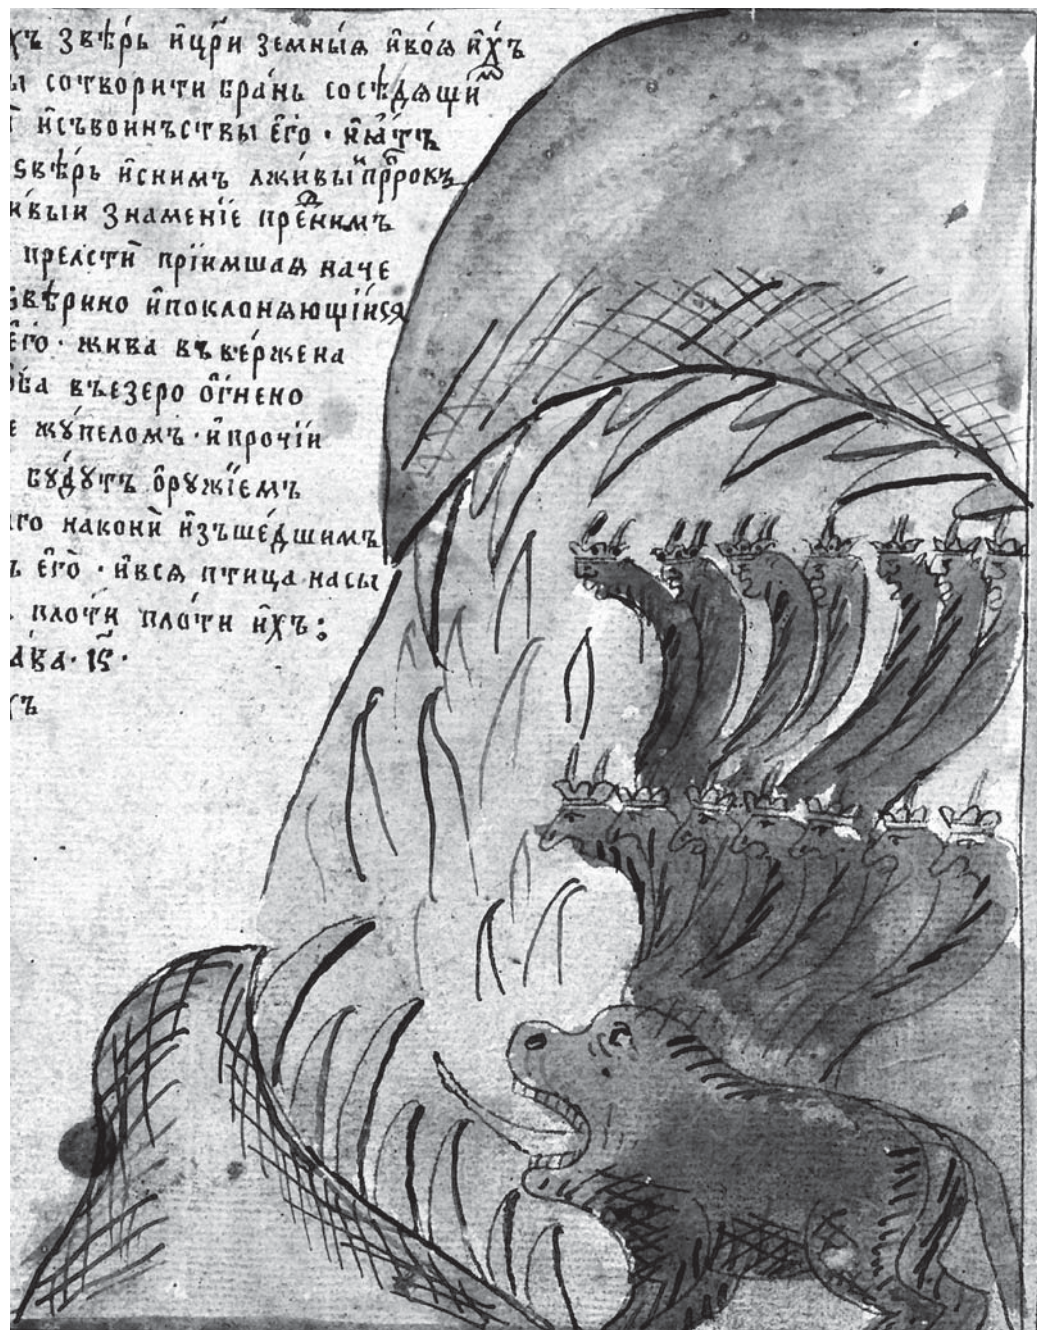 хъ звѣрь и҆цр҃и земны́ѧ и҆во́ѧ и҆́хъ
ы сотворити бра́нь сосѣдѧщи́м
и҆съвоинъствы є҆гѡ̀ · и҆ꙗ́тъ
ѕвѣ́рь и҆снимъ лжи́выи прⷪ҇рокъ
и́выи знаменїе преⷣнимъ
прелстѝ прїимшаѧ наче
ѕвѣрино и҆поклонѧющїи́сѧ
є҆го̀ · жива въве́ржена
о́ба въезеро о҆́гнено
е жꙋ́пеломъ · и҆прочїи
бꙋ́дꙋтъ ѻ҆рꙋжїемъ
аго наконѝ и҆зъше́дшимъ
ъ є҆го̀ · и҆всѧ птица насы
плоти пло́ти и҆́хъ :
а́ва · 
хъ